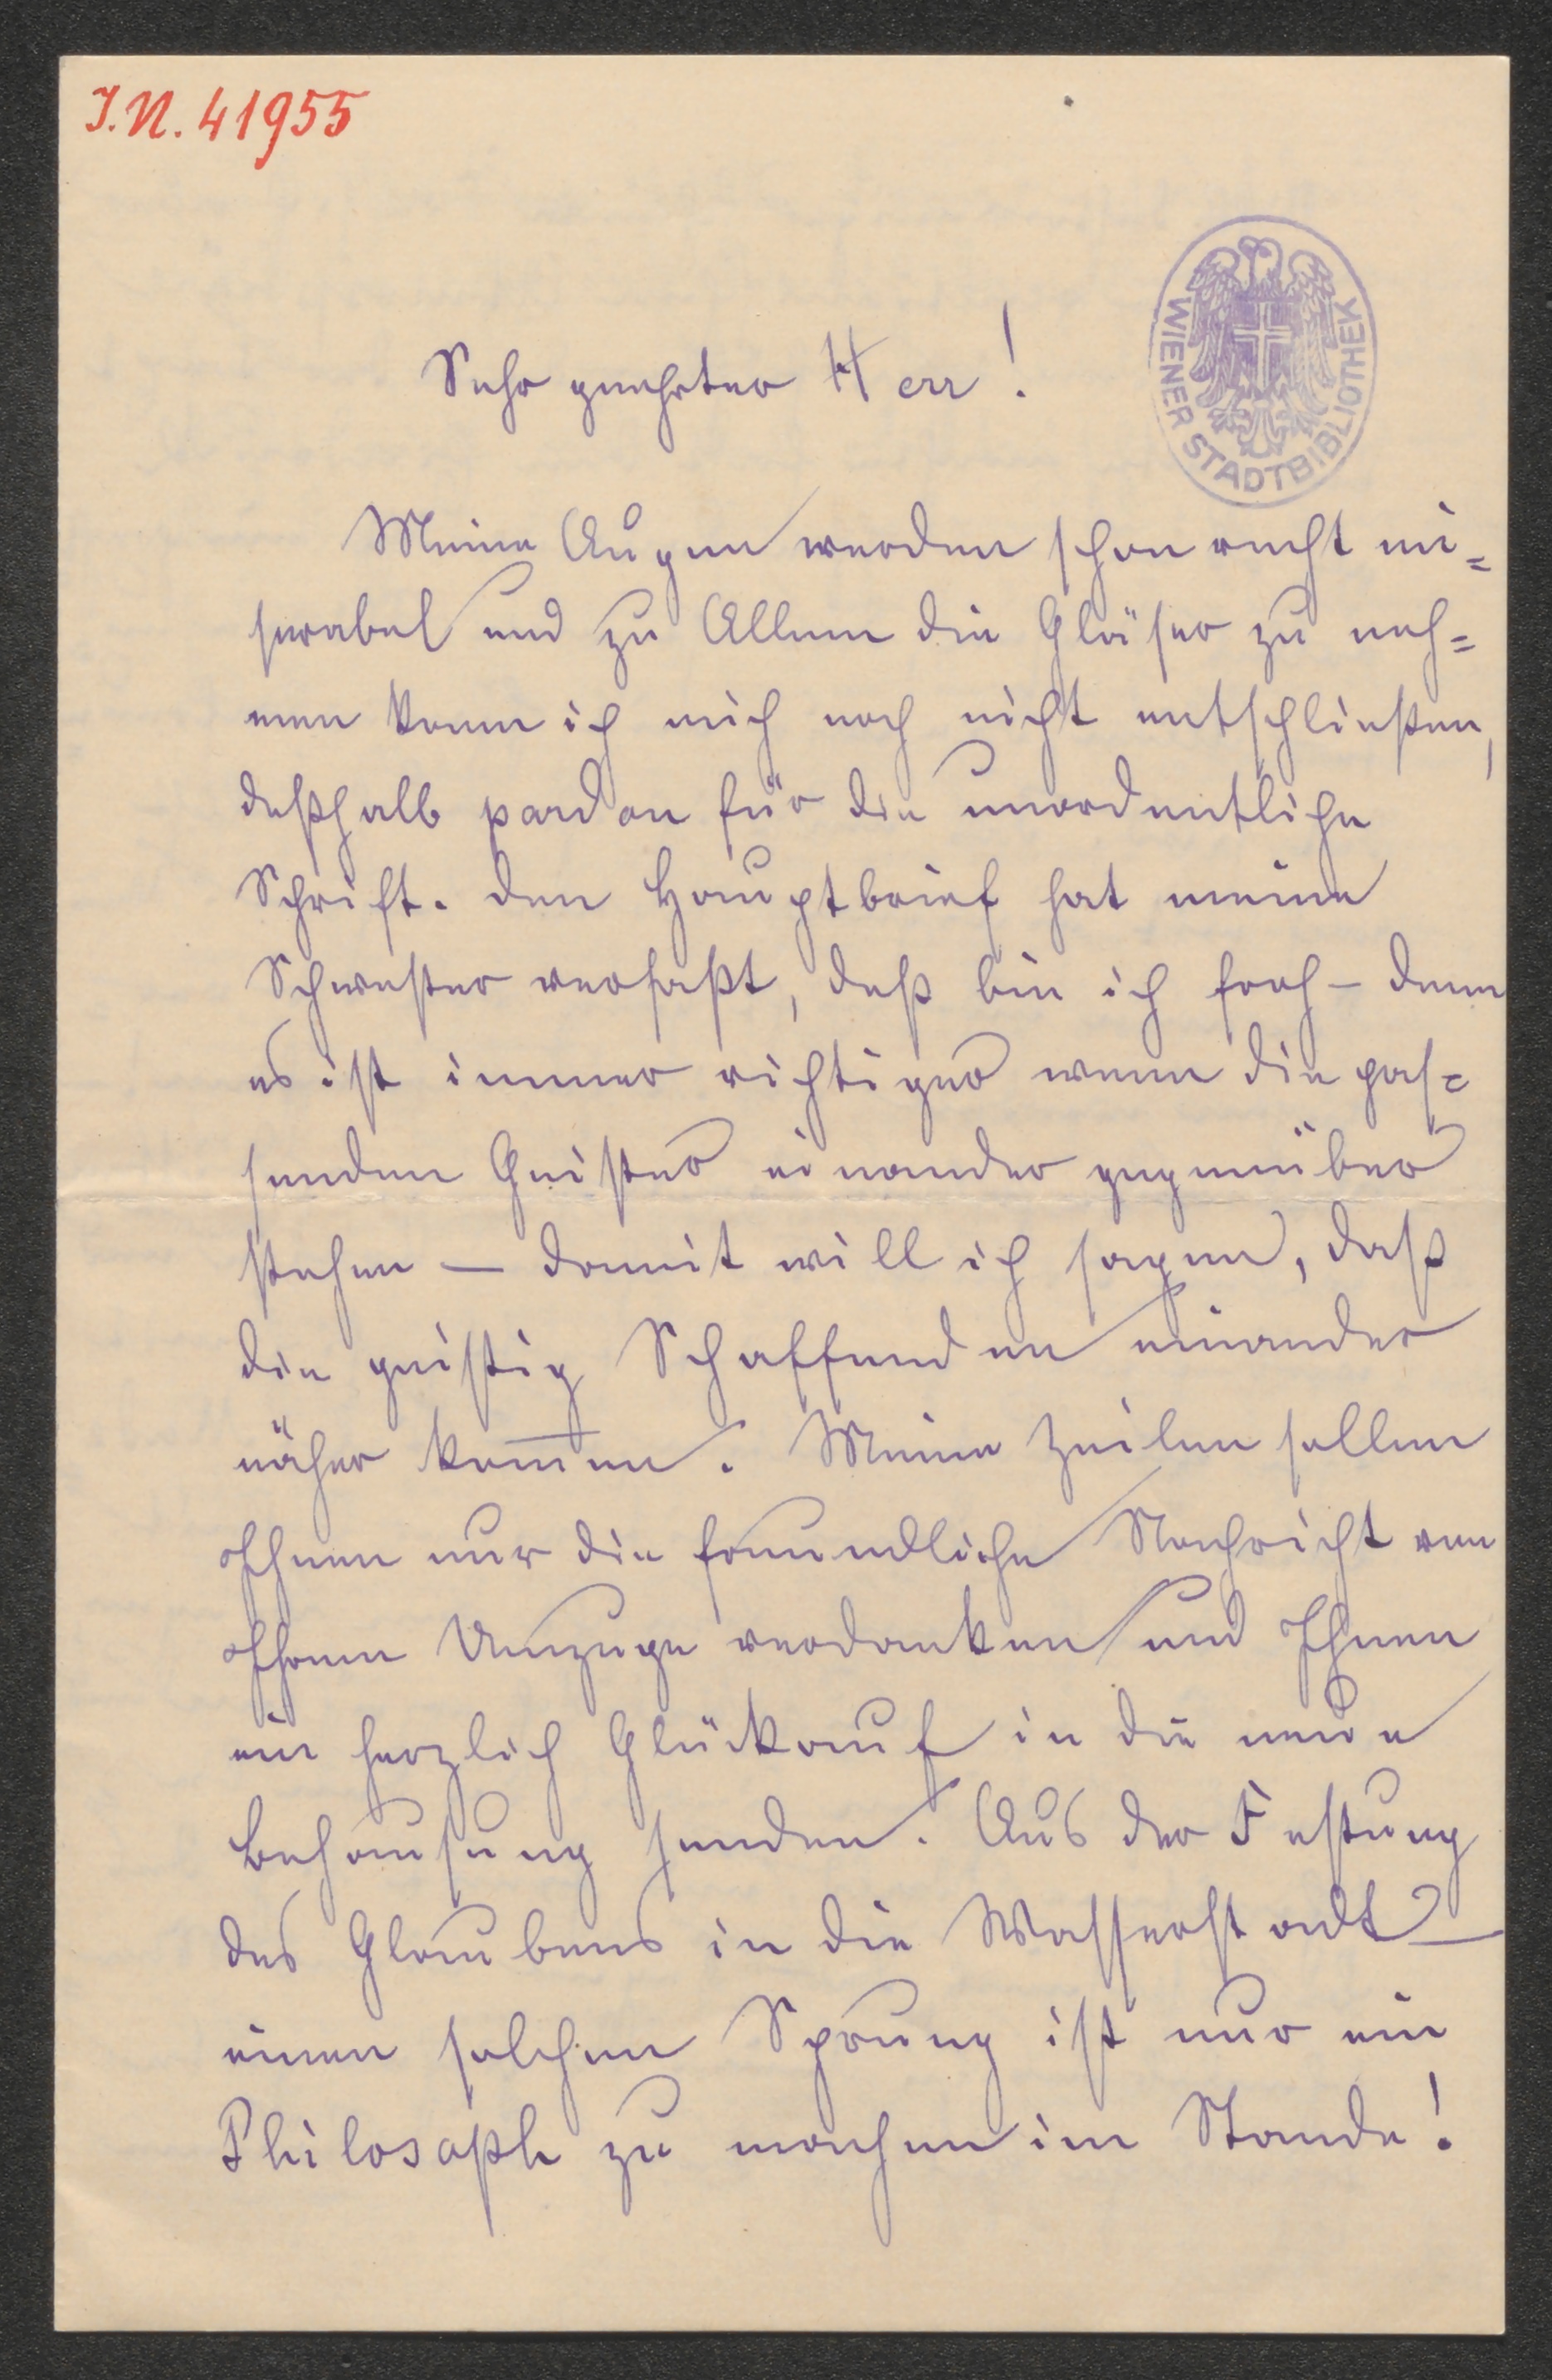 I.N. 41955
WIENER STADTBIBLIOTHEK
Sehr geehrter Herr!
Meine Augen werden schon recht mi=
serabel und zu Allem die Gläser zu neh=
men kann ich mich noch nicht entschließen,
deßhalb pardon für die unordentliche
Schrift. Den Hauptbrief hat meine
Schwester verfaßt, deß bin ich froh – denn
es ist immer richtiger wenn die pas=
senden Geister einander gegenüber
stehen — damit will ich sagen, daß
die geistig Schaffenden einander
näher kom̅en. Meine Zeilen sollen
Ihnen nur die freundliche Nachricht von
Ihrem Umzuge verdanken und Ihnen
ein herzlich Glückauf in die neue
Behausung senden. Aus der Festung
des Glaubens in die Wasserstadt —
einen solchen Sprung ist nur ein
Philosoph zu machen im Stande!